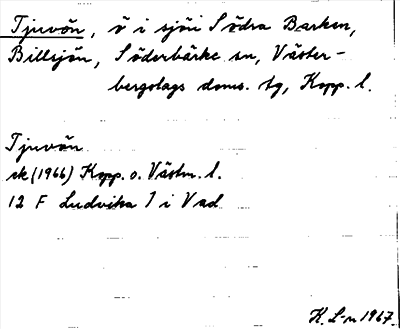 Tjuvön, ö i sjön Södra Barken,
Billsjön, Söderbärke sn, Väster-
bergslags doms. tg, Kopp. l.
Tjuvön
ek (1966) Kopp. o. Västm. l.
12 F Ludvika J i V ad
K. L-n 1967.